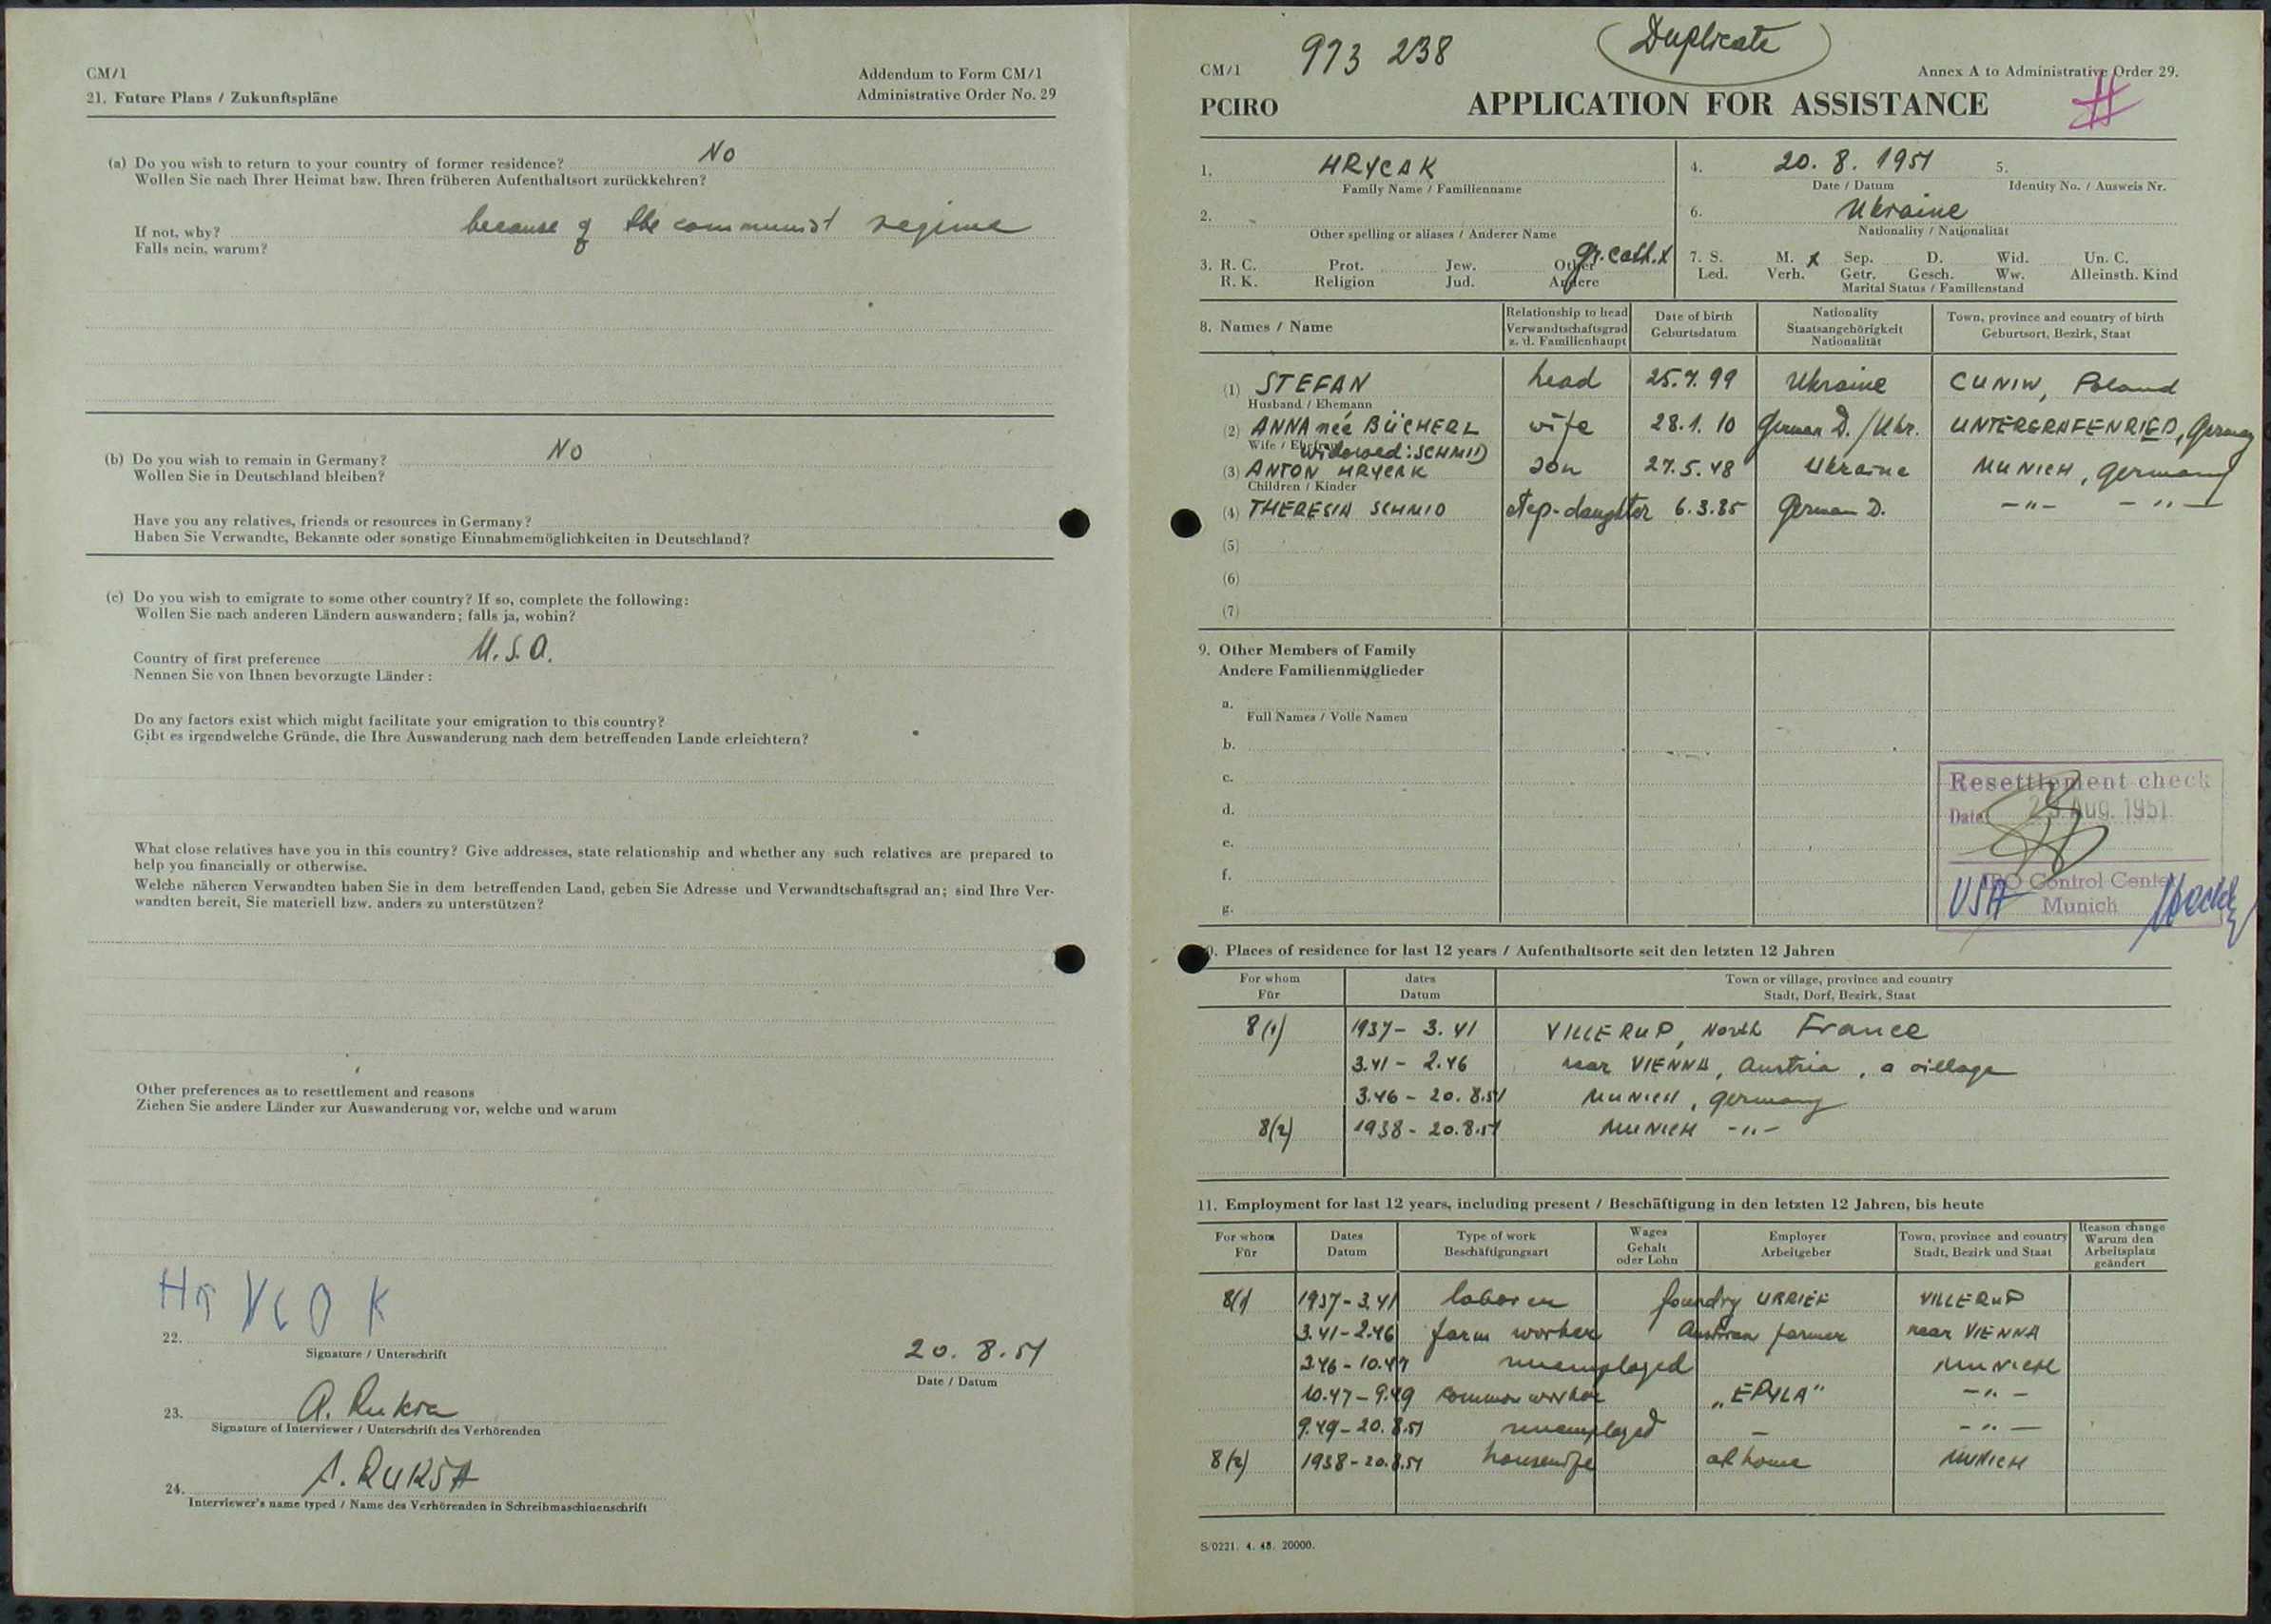 CM/1
Addendum to Form CM/1
21. Future Plans / Zukunftspläne
Administrative Order No. 29
(a) Do you wish to return to your country of former residence? No
Wollen Sie nach Ihrer Heimat bzw. Ihren früheren Aufenthaltsort zurückkehren?
If not, why? because of the communist regime
Falls nein, warum?
(b) Do you wish to remain in Germany? No
Wollen Sie in Deutschland bleiben?
Have you any relatives, friends or resources in Germany?
Haben Sie Verwandte, Bekannte oder sonstige Einnahmemöglichkeiten in Deutschland?
(c) Do you wish to emigrate to some other country? If so, complete the following:
Wollen Sie nach anderen Ländern auswandern; falls ja, wohin?
Country of first preference U.S.A.
Nennen Sie von Ihnen bevorzugte Länder:
Do any factors exist which might facilitate your emigration to this country?
Gibt es irgendwelche Gründe, die Ihre Auswanderung nach dem betreffenden Lande erleichtern?
What close relatives have you in this country? Give addresses, state relationship and whether any such relatives are prepared to
help you financially or otherwise.
Welche näheren Verwandten haben Sie in dem betreffenden Land, geben Sie Adresse und Verwandtschaftsgrad an; sind Ihre Ver-
wandten bereit, Sie materiell bzw. anders zu unterstützen?
Other preferences as to resettlement and reasons
Ziehen Sie andere Länder zur Auswanderung vor, welche und warum
22.
Signature / Unterschrift
20. 8. 51
Date / Datum
23. A. Ruksa
Signature of Interviewer / Unterschrift des Verhörenden
24. A. RUKSA
Interviewer's name typed / Name des Verhörenden in Schreibmaschinenschrift
CM/1 973 238 Duplicate
Annex A to Administrative Order 29.
PCIRO APPLICATION FOR ASSISTANCE
1. HRYCAK
Family Name / Familienname
4. 20. 8. 1951
Date / Datum
5.
Identity No. / Ausweis Nr.
2.
Other spelling or aliases / Anderer Name
6. Ukraine
Nationality / Nationalität
3. R. C. Prot. Jew. Other gr. cath. x
R. K. Religion Jud. Andere
7. S. M. x Sep. D. Wid. Un. C.
Led. Verh. Getr. Gesch. Ww. Alleinsth. Kind
Marital Status / Familienstand
8. Names / Name
Relationship to head
Verwandtschaftsgrad
z. d. Familienhaupt
Date of birth
Geburtsdatum
Nationality
Staatsangehörigkeit
Nationalität
Town, province and country of birth
Geburtsort, Bezirk, Staat
(1) STEFAN head 25.7.99 Ukraine CUNIW, Poland
Husband / Ehemann
(2) ANNA née BÜCHERL wife 28.1.10 German D./Ukr. UNTERGRAFENRIED, Germany
Wife / Ehefrau widowed: SCHMID
(3) ANTON HRYCAK son 27.5.48 Ukraine MUNICH, Germany
Children / Kinder
(4) THERESIA SCHMID step-daughter 6.3.35 German D. -"- -"-
(5)
(6)
(7)
9. Other Members of Family
Andere Familienmitglieder
a.
Full Names / Volle Namen
b.
c.
d.
e.
f.
g.
Resettlement check
Date 23 Aug. 1951
IRO Control Center
USA Munich
10. Places of residence for last 12 years / Aufenthaltsorte seit den letzten 12 Jahren
For whom
Für
dates
Datum
Town or village, province and country
Stadt, Dorf, Bezirk, Staat
8(1) 1937 - 3.41 VILLERUP, North France
3.41 - 2.46 near VIENNA, Austria, a village
3.46 - 20.8.51 MUNICH, Germany
8(2) 1938 - 20.8.51 MUNICH -"-
11. Employment for last 12 years, including present / Beschäftigung in den letzten 12 Jahren, bis heute
For whom
Für
Dates
Datum
Type of work
Beschäftigungsart
Wages
Gehalt
oder Lohn
Employer
Arbeitgeber
Town, province and country
Stadt, Bezirk und Staat
Reason change
Warum den
Arbeitsplatz
geändert
8(1 1937 - 3.41 laborer foundry URRIEF VILLERUP
3.41 - 2.46 farm worker Austrian farmer near VIENNA
3.46 - 10.47 unemployed MUNICH
10.47 - 9.49 common worker „EPYLA" -"-
9.49 - 20.8.51 unemployed - -"-
8(2) 1938 - 20.8.51 housewife at home MUNICH
S/0221. 4. 48. 20000.